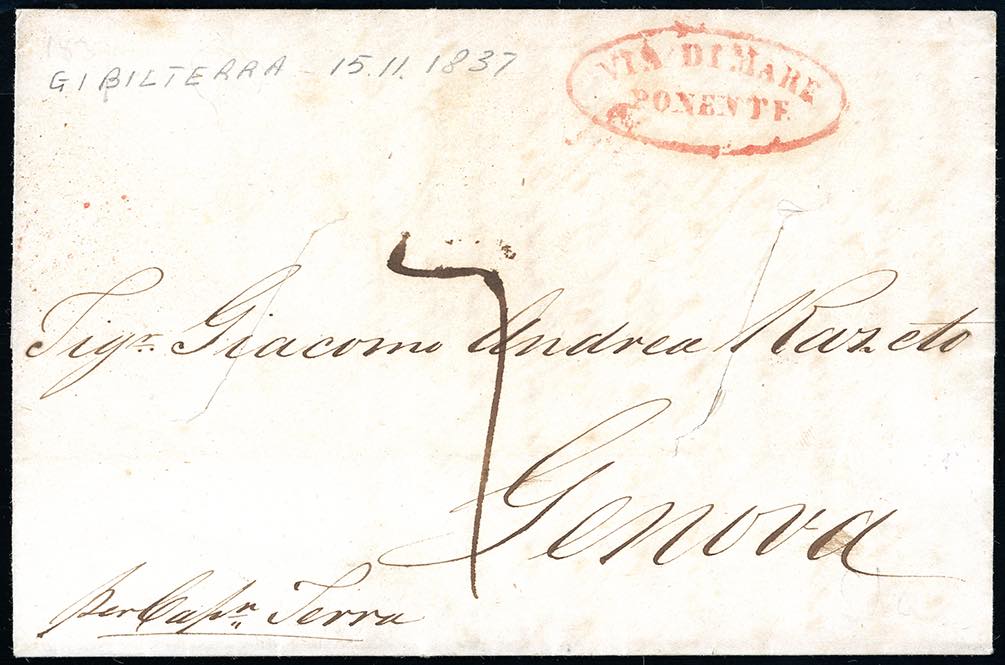 GIBILTERRA - 15.11.1837
VIA DI MARE
PONENTE
7
Sigr. Giacomo Andrea Razeto
Genova
per Capn. Terra